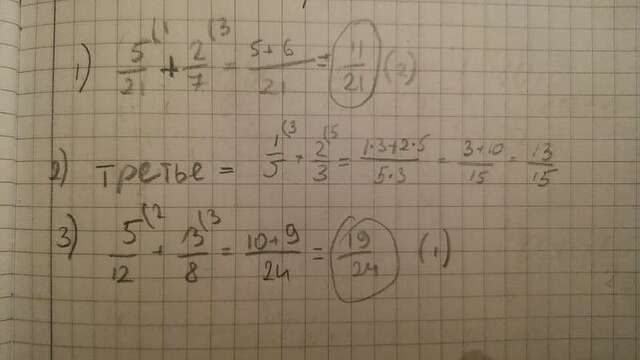 1) 5/21 (1 + 2/7 (3 = 5+6/21 = 11/21 (2)
2) третье = 1/5 (3 + 2/3 (5 = 1·3+2·5/5·3 = 3+10/15 = 13/15
3) 5/12 (2 + 3/8 (3 = 10+9/24 = 19/24 (1)